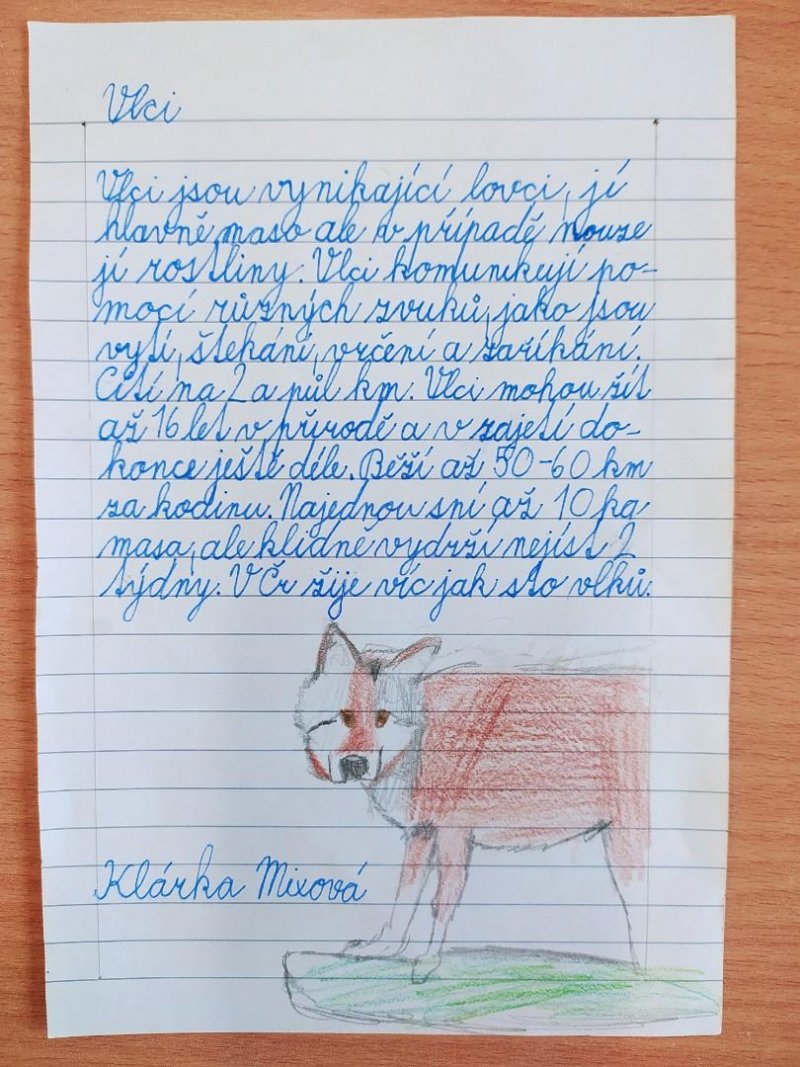 Vlci
Vlci jsou vynikající lovci, jí
hlavně maso ale v případě nouze
jí rostliny. Vlci komunikují po-
mocí různých zvuků, jako jsou
vytí, štěkání, vrčení a zaříkání.
Cítí na 2 a půl km. Vlci mohou žít
až 16 let v přírodě a v zajetí do-
konce ještě déle. Běží až 50-60 km
za hodinu. Najednou sní až 10 kg
masa, ale klidně vydrží nejíst 2
týdny. V Čr žije víc jak sto vlků.
Klárka Mixová